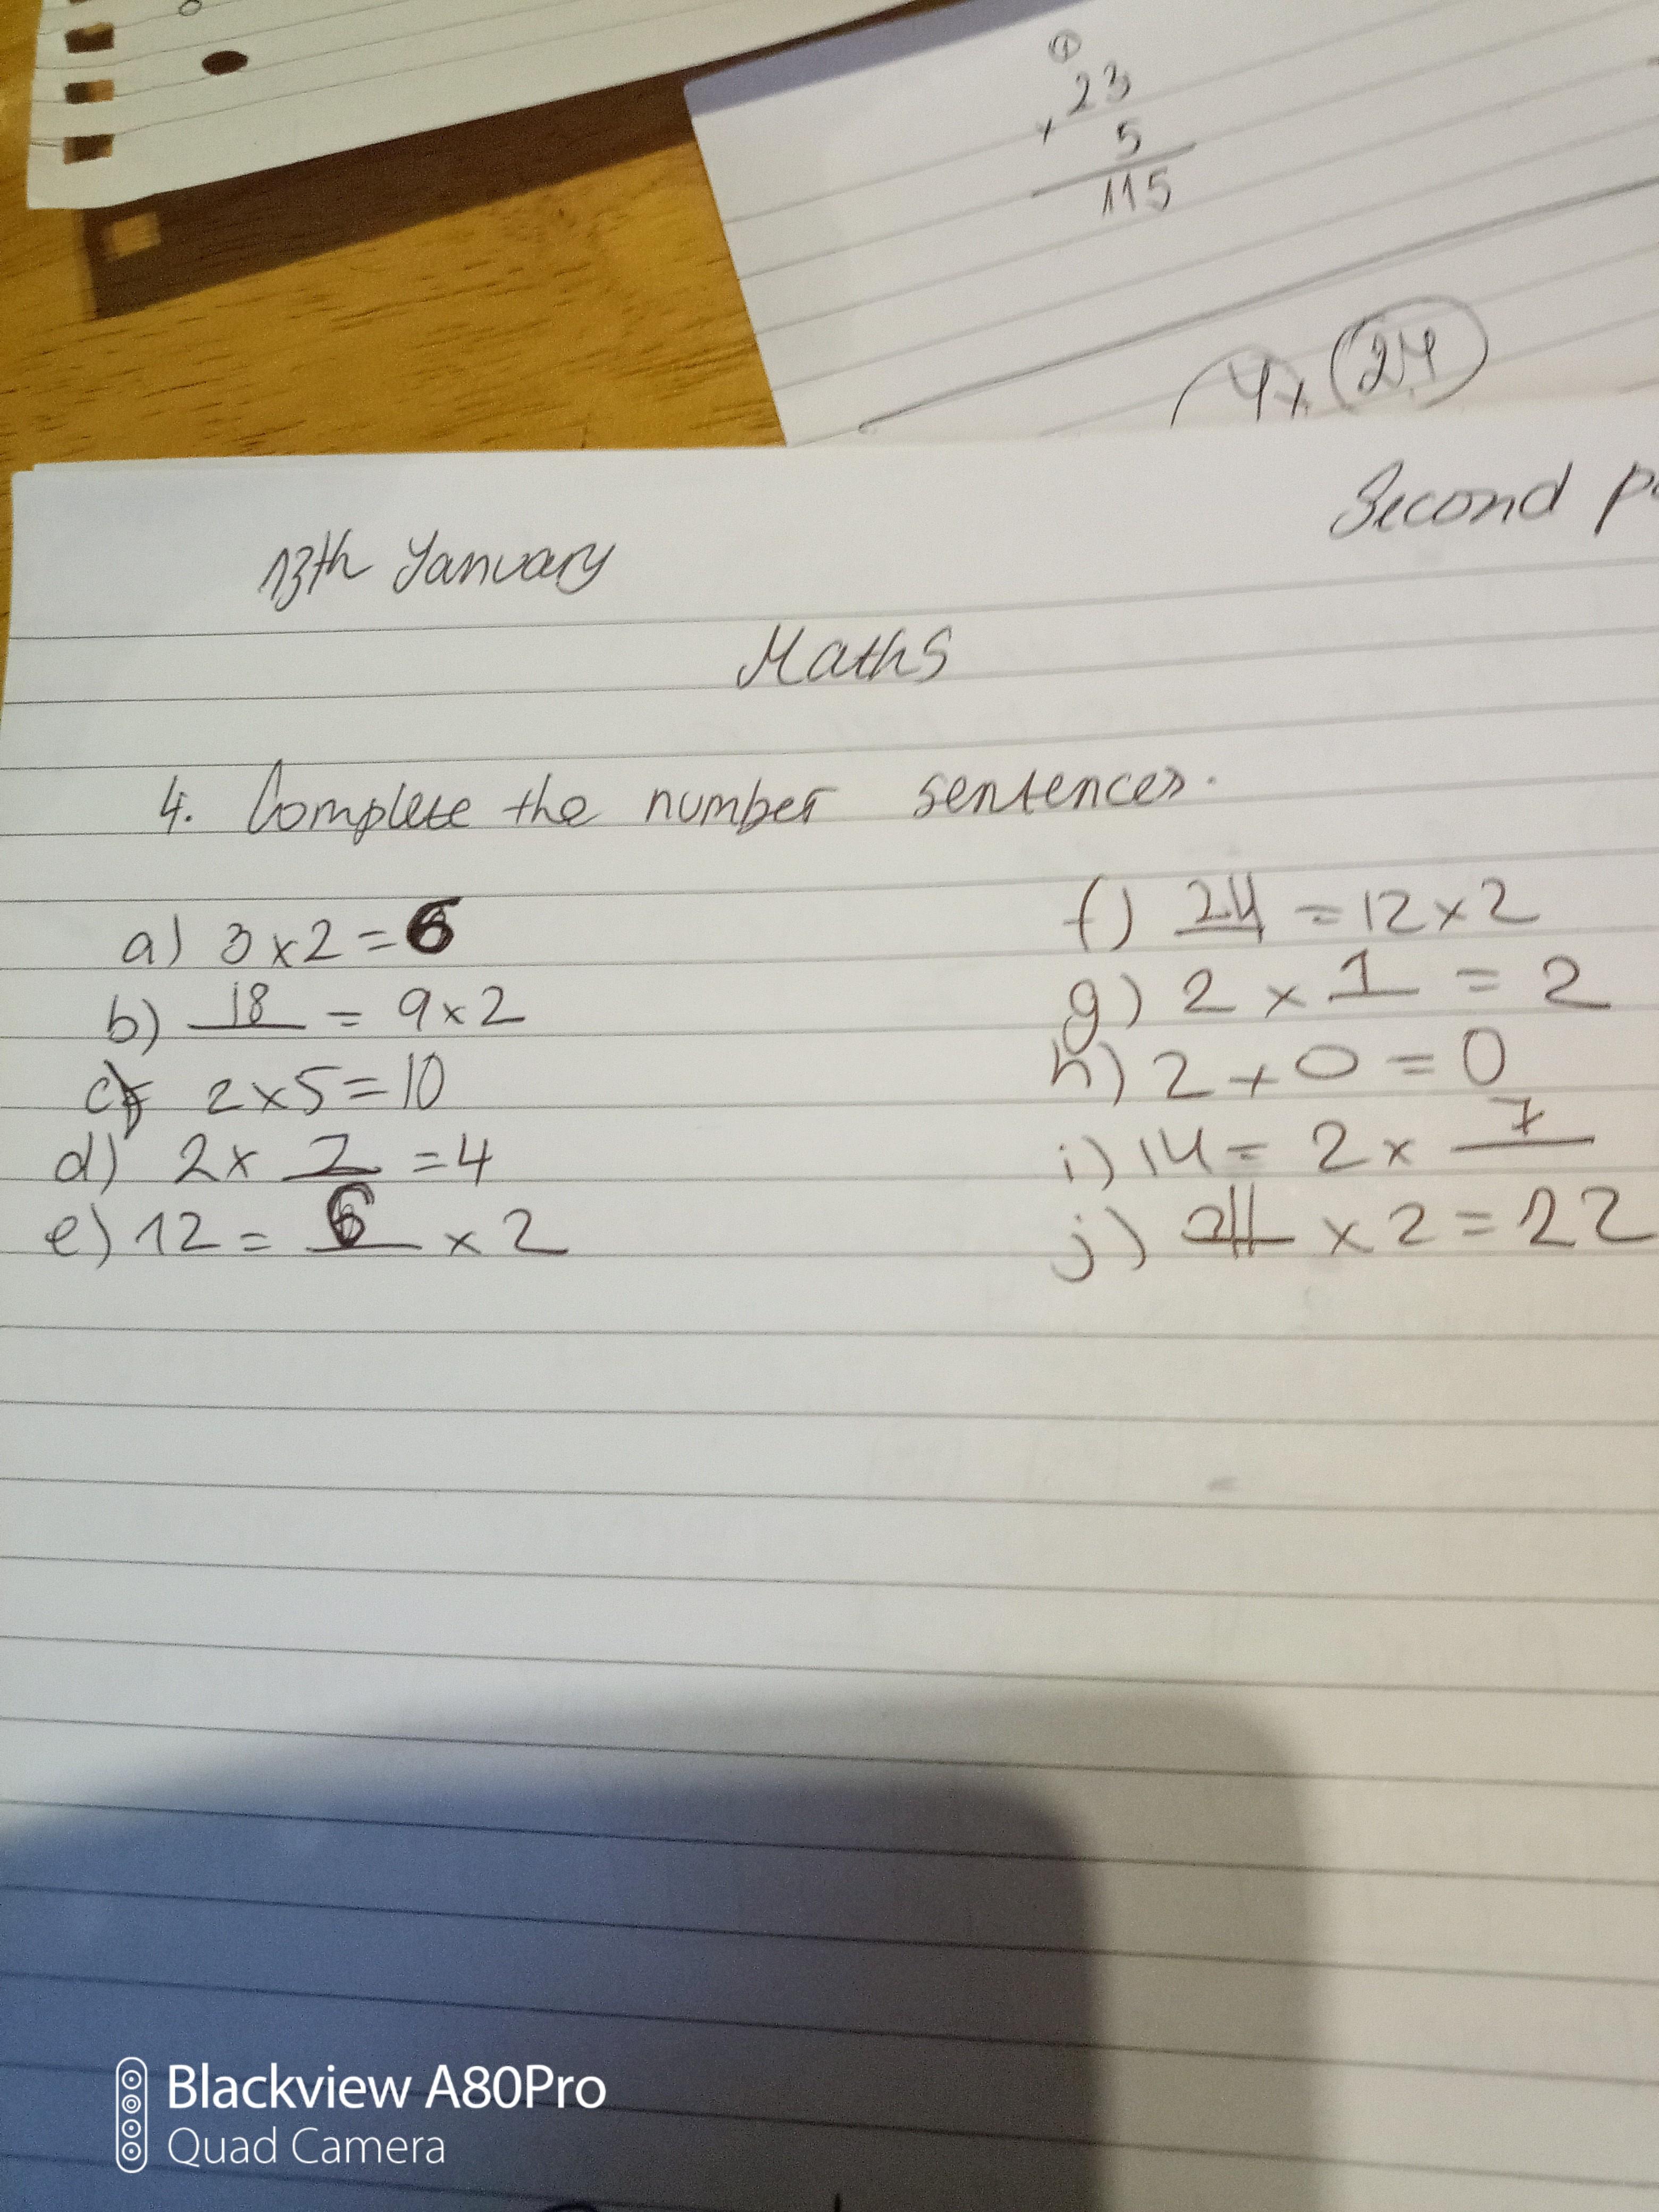 ①
23
× 5
115
4x 24
Second
13th January
Maths
4. Complete the number sentences.
a) 3 x 2 = 6
b) 18 = 9 x 2
c) 2 x 5 = 10
d) 2 x 2 = 4
e) 12 = 6 x 2
f) 24 = 12 x 2
g) 2 x 1 = 2
h) 2 x 0 = 0
i) 14 = 2 x 7
j) 11 x 2 = 22
Blackview A80Pro
Quad Camera